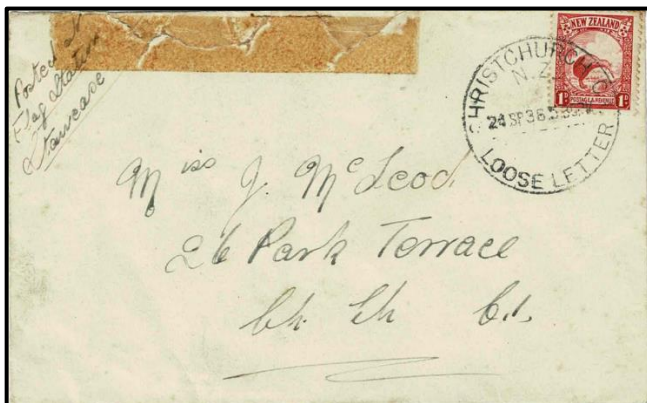 Posted at
Flag Station
Staircase
NEW ZEALAND
1D
POSTAGE & REVENUE
1D
CHRISTCHURCH C
N.Z.
24 SP 36
LOOSE LETTER
Miss J. McLeod
26 Park Terrace
Ch. Ch C.1.